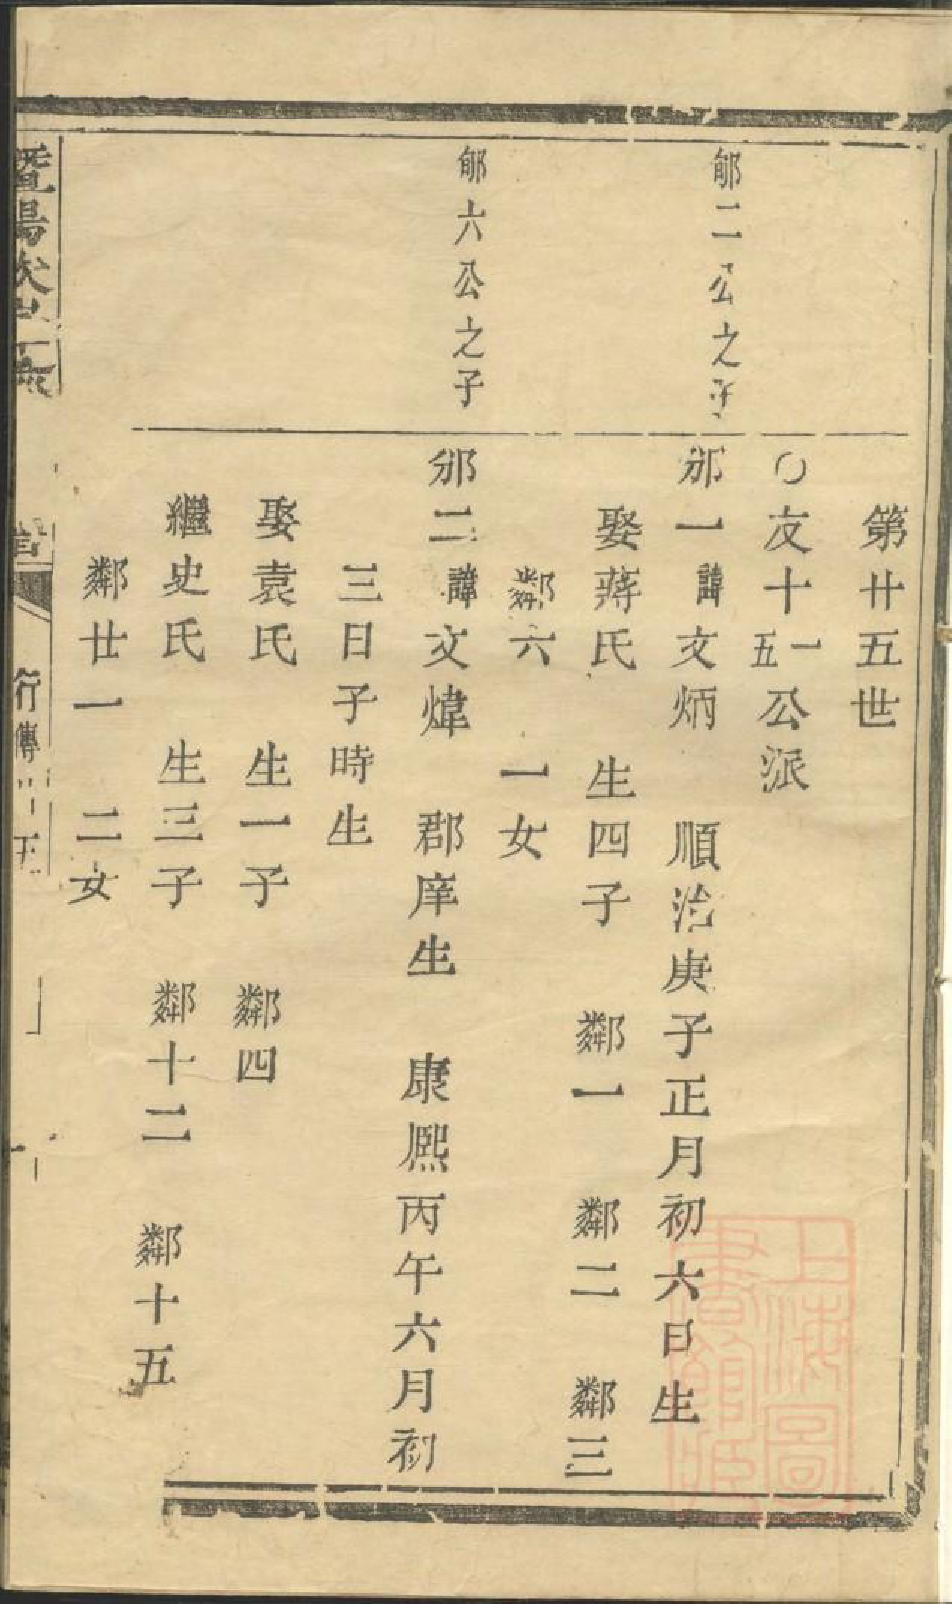 第廿五世
○友十一五公派
郁二公之子
邠一諱文炳 順治庚子正月初六日生
娶蔣氏 生四子 鄰一 鄰二 鄰三
鄰六 一女
郁六公之子
邠二諱文煒 郡庠生 康熙丙午六月初
三日子時生
娶袁氏 生一子 鄰四
繼史氏 生三子 鄰十二 鄰十五
鄰廿一 二女
暨陽
行傳
上海圖書館藏